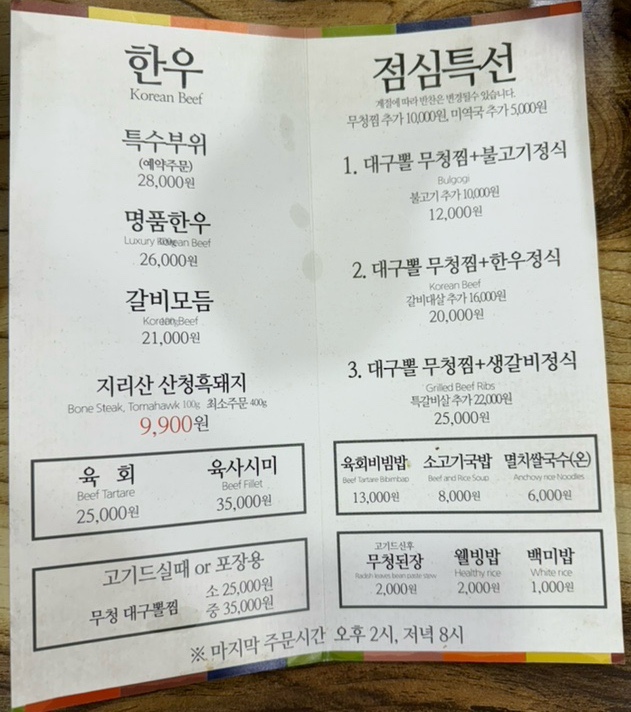 한우
Korean Beef
특수부위
(예약주문)
28,000원
명품한우
Luxury Korean Beef
26,000원
갈비모듬
Korean Beef
21,000원
지리산 산청흑돼지
Bone Steak, Tomahawk 100g 최소주문 400g
9,900원
육 회
Beef Tartare
25,000원
육사시미
Beef Fillet
35,000원
고기드실때 or 포장용
무청 대구뽈찜
소 25,000원
중 35,000원
점심특선
계절에 따라 반찬은 변경될수 있습니다.
무청찜 추가 10,000원, 미역국 추가 5,000원
1. 대구뽈 무청찜+불고기정식
Bulgogi
불고기 추가 10,000원
12,000원
2. 대구뽈 무청찜+한우정식
Korean Beef
갈비대살 추가 16,000원
20,000원
3. 대구뽈 무청찜+생갈비정식
Grilled Beef Ribs
특갈비살 추가 22,000원
25,000원
육회비빔밥
Beef Tartare Bibimbap
13,000원
소고기국밥
Beef and Rice Soup
8,000원
멸치쌀국수(온)
Anchovy rice Noodles
6,000원
고기드신후
무청된장
Radish leaves bean paste stew
2,000원
웰빙밥
Healthy rice
2,000원
백미밥
White rice
1,000원
※ 마지막 주문시간 오후 2시, 저녁 8시